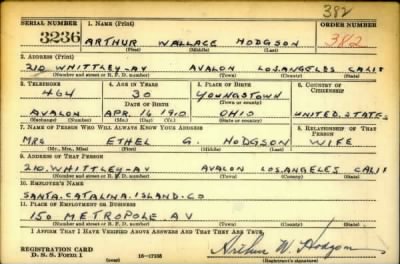 382
SERIAL NUMBER 1. Name (Print) ORDER NUMBER
3236 ARTHUR WALLACE HODGSON 382
(First) (Middle) (Last)
2. Address (Print)
210 WHITTLEY-AV AVALON LOS.ANGELES CALIF
(Number and street or R. F. D. number) (Town) (County) (State)
3. Telephone 4. Age in Years 5. Place of Birth 6. Country of Citizenship
464 30 YOUNGSTOWN
Date of Birth (Town or county)
AVALON APR. 16 1910 OHIO UNITED.STATES
(Exchange) (Number) (Mo.) (Day) (Yr.) (State or country)
7. Name of Person Who Will Always Know Your Address 8. Relationship of That Person
MRS ETHEL G. HODGSON WIFE
(Mr., Mrs., Miss) (First) (Middle) (Last)
9. Address of That Person
210. WHITTLEY-AV AVALON LOS.ANGELES CALIF
(Number and street or R. F. D. number) (Town) (County) (State)
10. Employer's Name
SANTA.CATALINA.ISLAND.CO
11. Place of Employment or Business
150 METROPOLE AV
(Number and street or R. F. D. number) (Town) (County) (State)
I Affirm That I Have Verified Above Answers and That They Are True.
REGISTRATION CARD
D. S. S. Form 1 (over) 16-17105 Arthur W. Hodgson
(Registrant's signature)